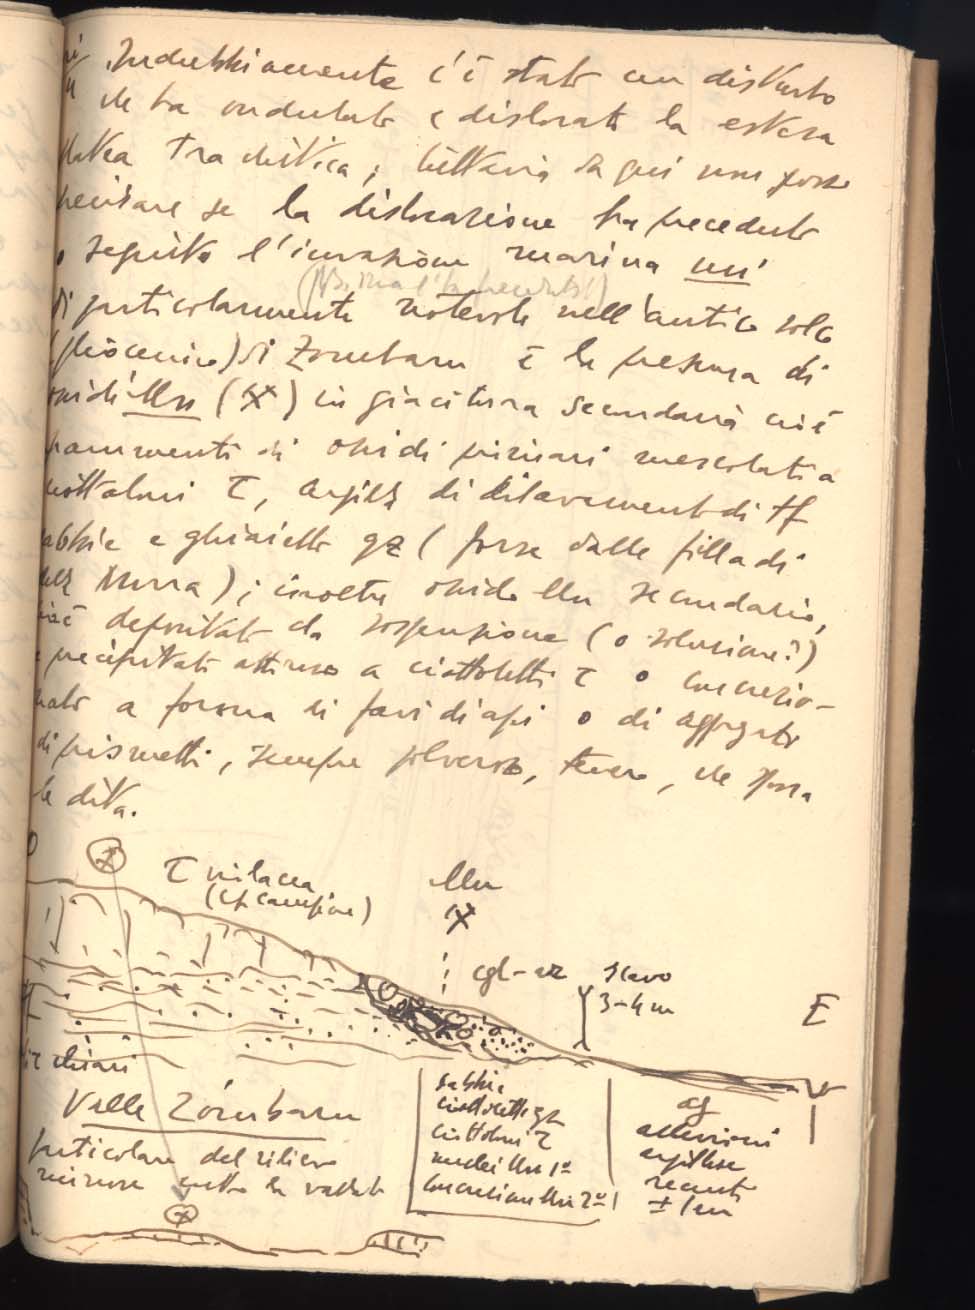 Indubbiamente c'è stato un disturbo
che ha ondulato e dislocato la estesa
trachitica, tuttavia da qui non posso
precisare se la dislocazione ha preceduto
o seguito l'invasione marina
(NB. ma l'ha preceduta!)
Di particolarmente notevole nell'antico solco
(pliocenico) di Zòrubaru è la presenza di
ossidi Mn (X) in giacitura secondaria cioè
frammenti di ossidi primari mescolati a
ciottoloni τ, argille di dilavamento di tf
sabbie e ghiaiette qz (forse dalle filladi
della Nurra); inoltre ossido Mn secondario,
cioè depositato da sospensione (o soluzione?)
e precipitato attorno a ciottoletti τ o concrezio-
nato a forma di favi di api o di aggregato
di prismetti, sempre polveroso, tenero, che sporca
le dita.
O
τ violacea
Mn
X
cgl-ar
scavo
3-4m
E
chiari
Valle Zòrubaru
particolare del rilievo
sabbie
ciottoletti qz
ciottoloni τ
noduli Mn 1°
concrezioni Mn 2°
ag
alluvioni
argillose
recenti
± 1m